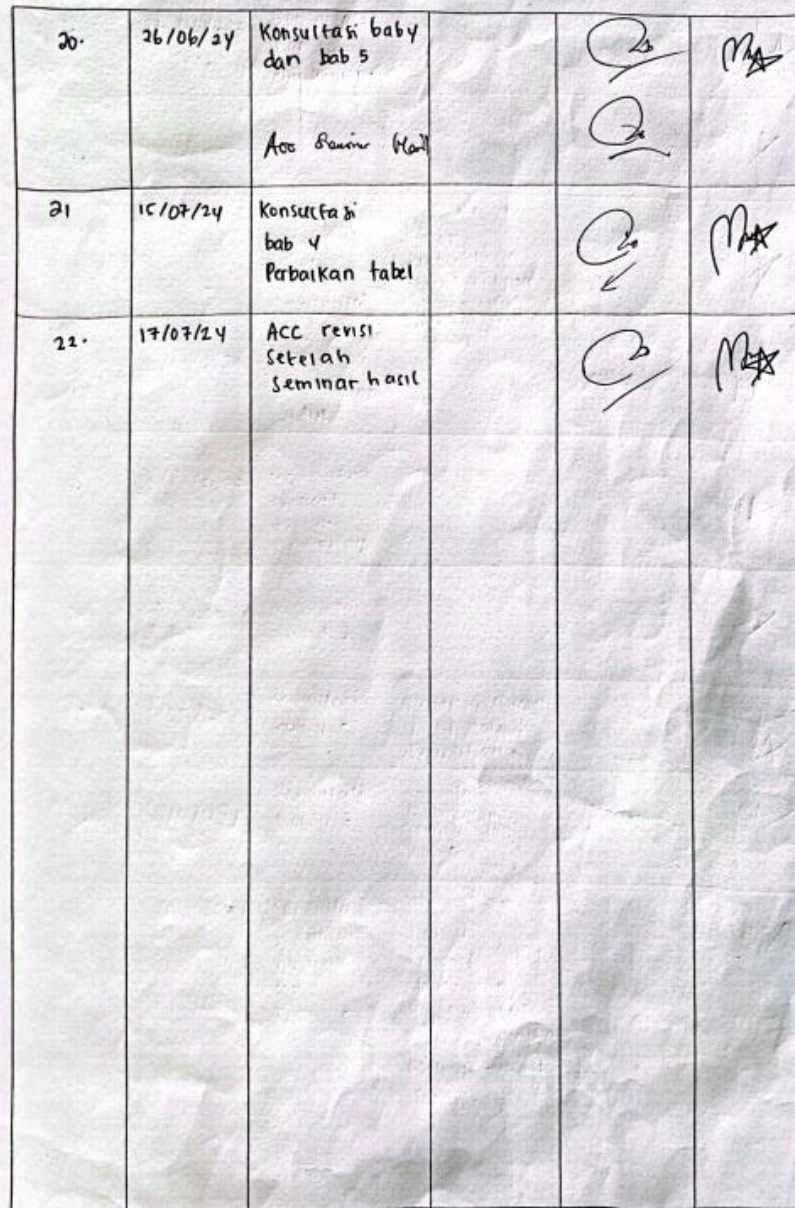 20.
26/06/24
Konsultasi bab 4
dan bab 5
Acc
21
15/07/24
Konsultasi
bab 4
Perbaikan tabel
22.
17/07/24
ACC revisi
Setelah
Seminar hasil